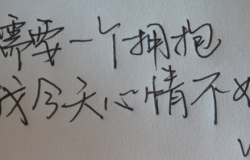 需要一个拥抱
我今天心情不